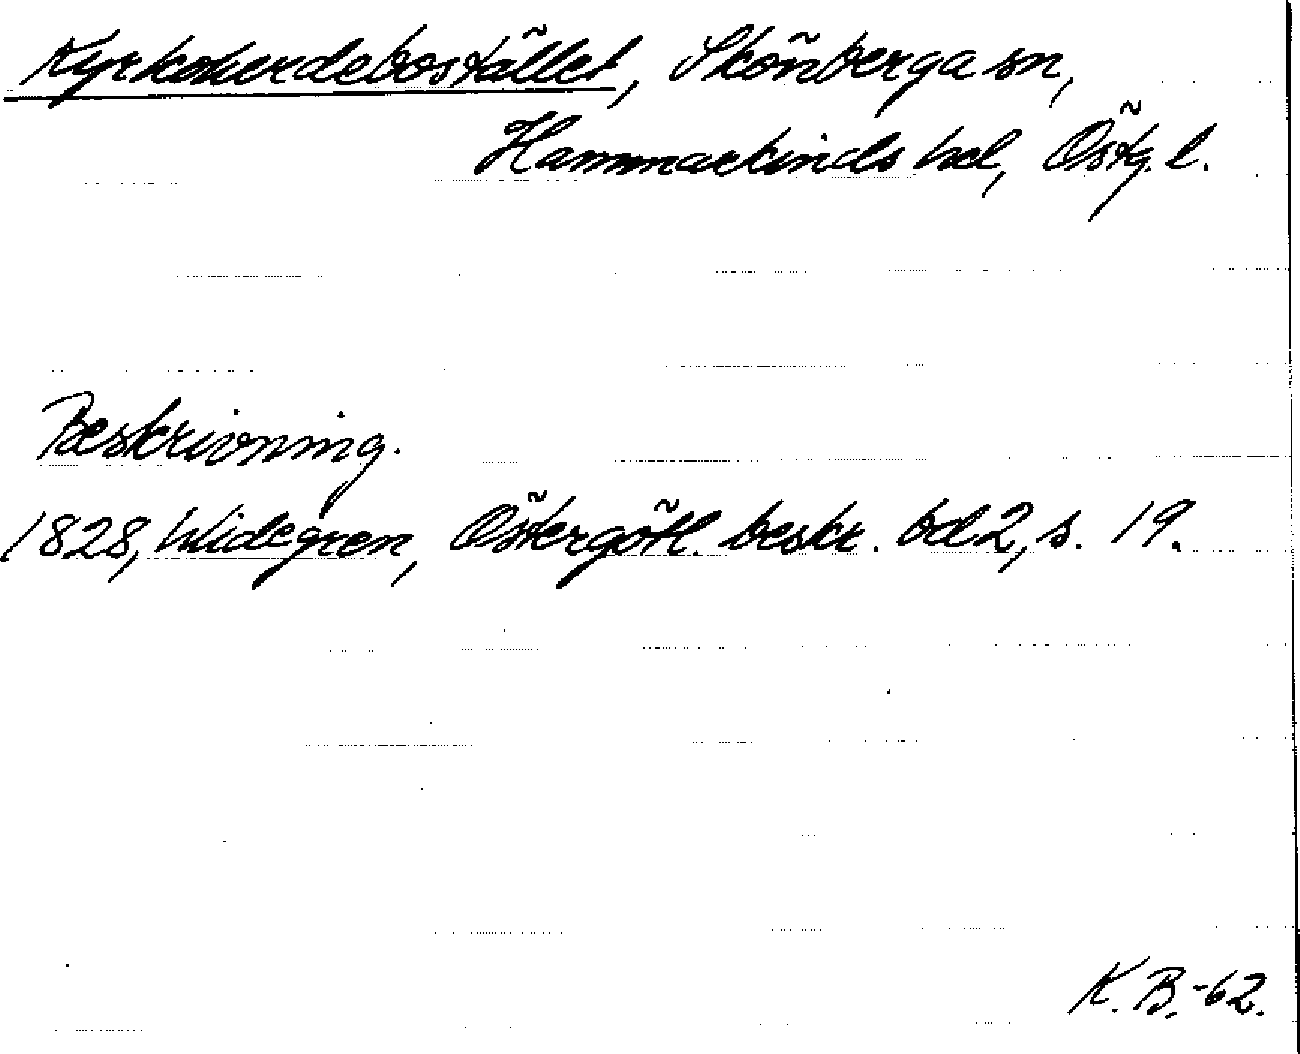 Kyrkoherdebostället, Skönberga sn,
Hammarkinds hd, Östg. l.
Beskrivning.
1828, Widegren, Östergötl. beskr. bd 2, s. 19.
K. B.-62.